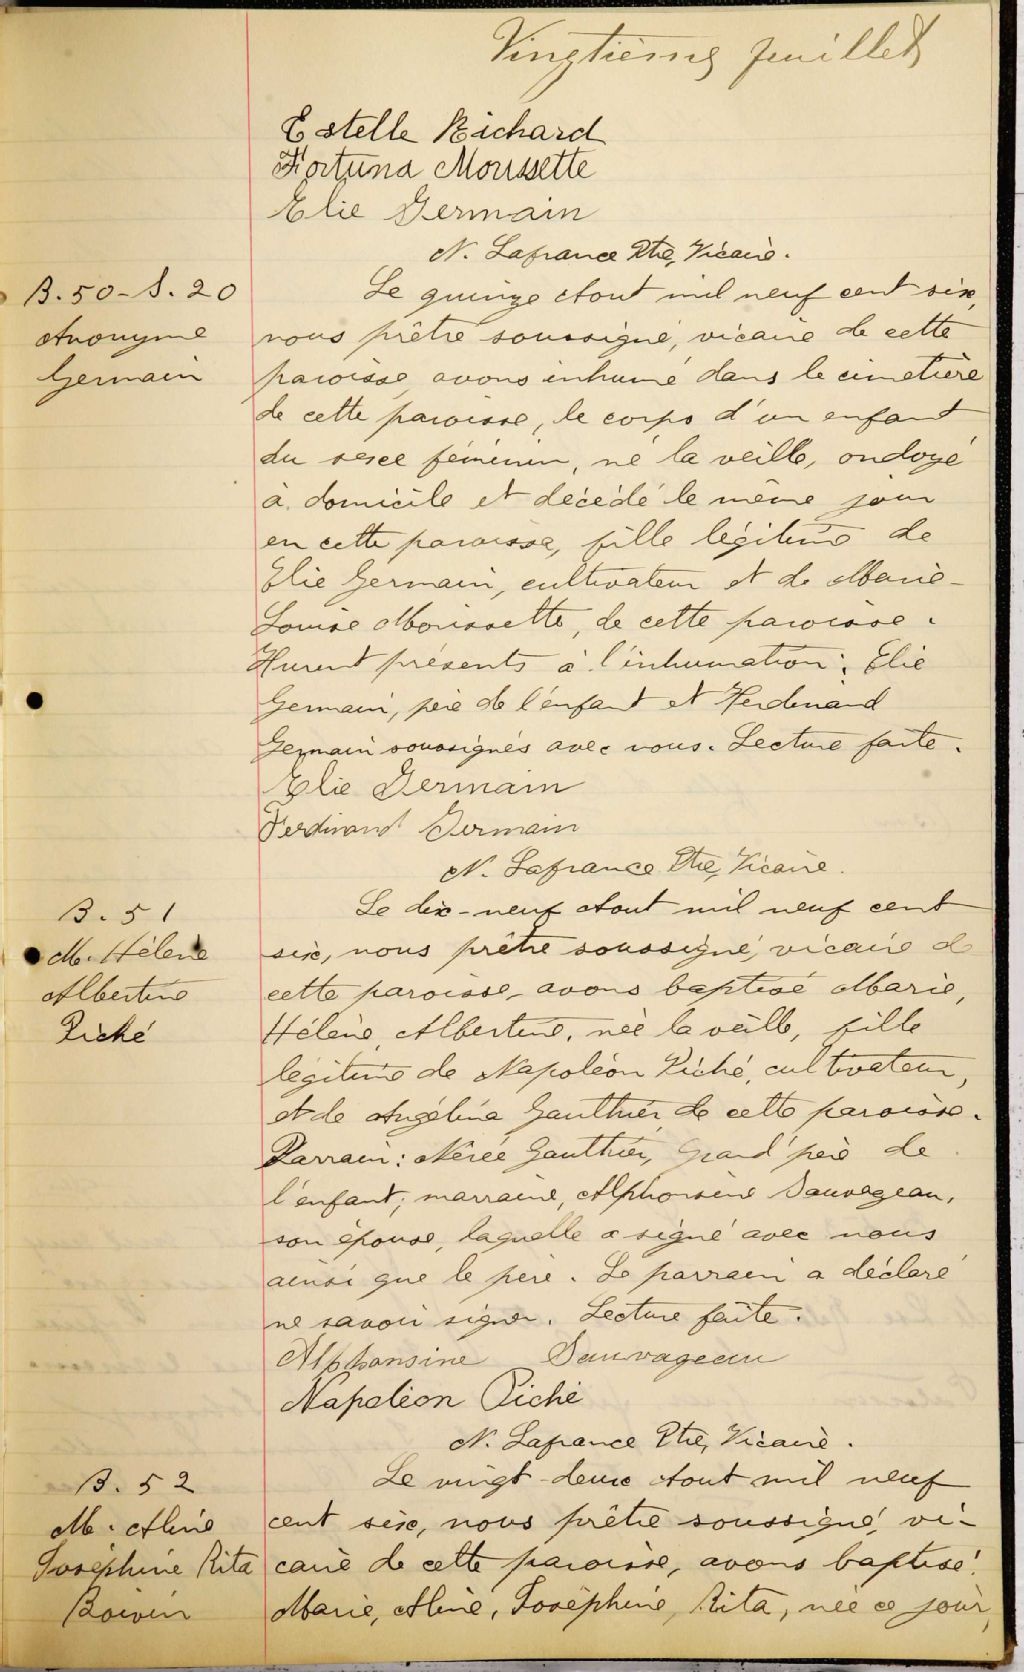 Vingtième feuillet
Estelle Richard
Fortuna Moussette
Elie Germain
N. Lafrance Ptre, Vicaire.
B. 50 - S. 20
Anonyme
Germain
Le quinze Aout mil neuf cent six,
nous prêtre soussigné, vicaire de cette
paroisse, avons inhumé dans le cimetière
de cette paroisse, le corps d'un enfant
du sexe féminin, né la veille, ondoyé
à domicile et décédé le même jour
en cette paroisse, fille légitime de
Elie Germain, cultivateur et de Marie-
Louise Morissette, de cette paroisse.
Furent présents à l'inhumation: Elie
Germain, père de l'enfant et Ferdinand
Germain soussignés avec nous. Lecture faite.
Elie Germain
Ferdinand Germain
N. Lafrance Ptre, Vicaire.
B. 51
M. Hélène
Albertine
Piché
Le dix-neuf Aout mil neuf cent
six, nous prêtre soussigné, vicaire de
cette paroisse, avons baptisé Marie,
Hélène, Albertine, née la veille, fille
légitime de Napoléon Piché, cultivateur,
et de Angélina Gauthier, de cette paroisse.
Parrain: Nérée Gauthier, Grand'père de
l'enfant; marraine, Alphonsine Sauvageau,
son épouse, laquelle a signé avec nous
ainsi que le père. Le parrain a déclaré
ne savoir signer. Lecture faite.
Alphonsine Sauvageau
Napoléon Piché
N. Lafrance Ptre, Vicaire.
B. 52
M. Aline
Joséphine Rita
Boivin
Le vingt-deux Aout mil neuf
cent six, nous prêtre soussigné, vi-
caire de cette paroisse, avons baptisé
Marie, Aline, Joséphine, Rita, née ce jour,